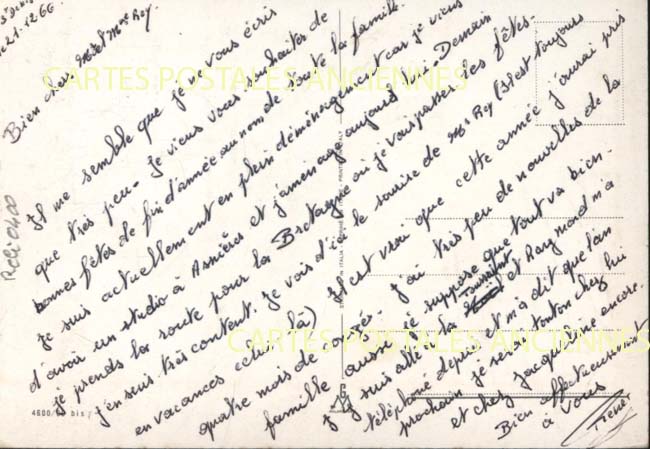 21.12.66
Bien chers Mr et Mme Rey,
Il me semble que je vous écris
que très peu. Je viens vous souhaiter de
bonnes fêtes de fin d'année au nom de toute la famille.
Je suis actuellement en plein déménagement car je viens
d'avoir un studio à Asnières et j'aménage aujourd'hui. Demain
je prends la route pour la Bretagne où je vais passer les fêtes.
J'en suis très content. Je vois d'ici le sourire de Mr Rey (Il est toujours
en vacances celui là). Il est vrai que cette année j'aurai pris
quatre mois de congés. J'ai très peu de nouvelles de la
famille aussi je suppose que tout va bien.
Je suis allé à la Toussaint et Raymond m'a
téléphoné depuis et m'a dit que l'an
prochain je serai tonton chez lui
et chez Jacqueline encore.
Bien affectueusement
à vous
CARTES POSTALES ANCIENNES
CARTES POSTALES ANCIENNES
4600/ bis